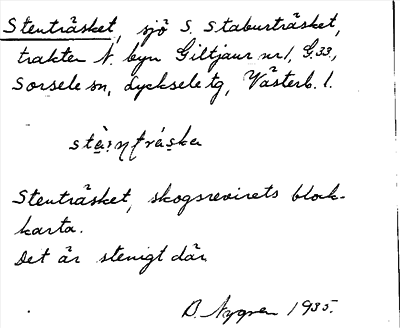 Stenträsket, sjö S. Staburträsket,
trakten N. byn Giltjaur nr 1, G. 33,
Sorsele sn, Lycksele tg, Västerb. l.
Stenträsket, skogsrevirets block-
karta.
Det är stenigt där
B. Nygren 1935.